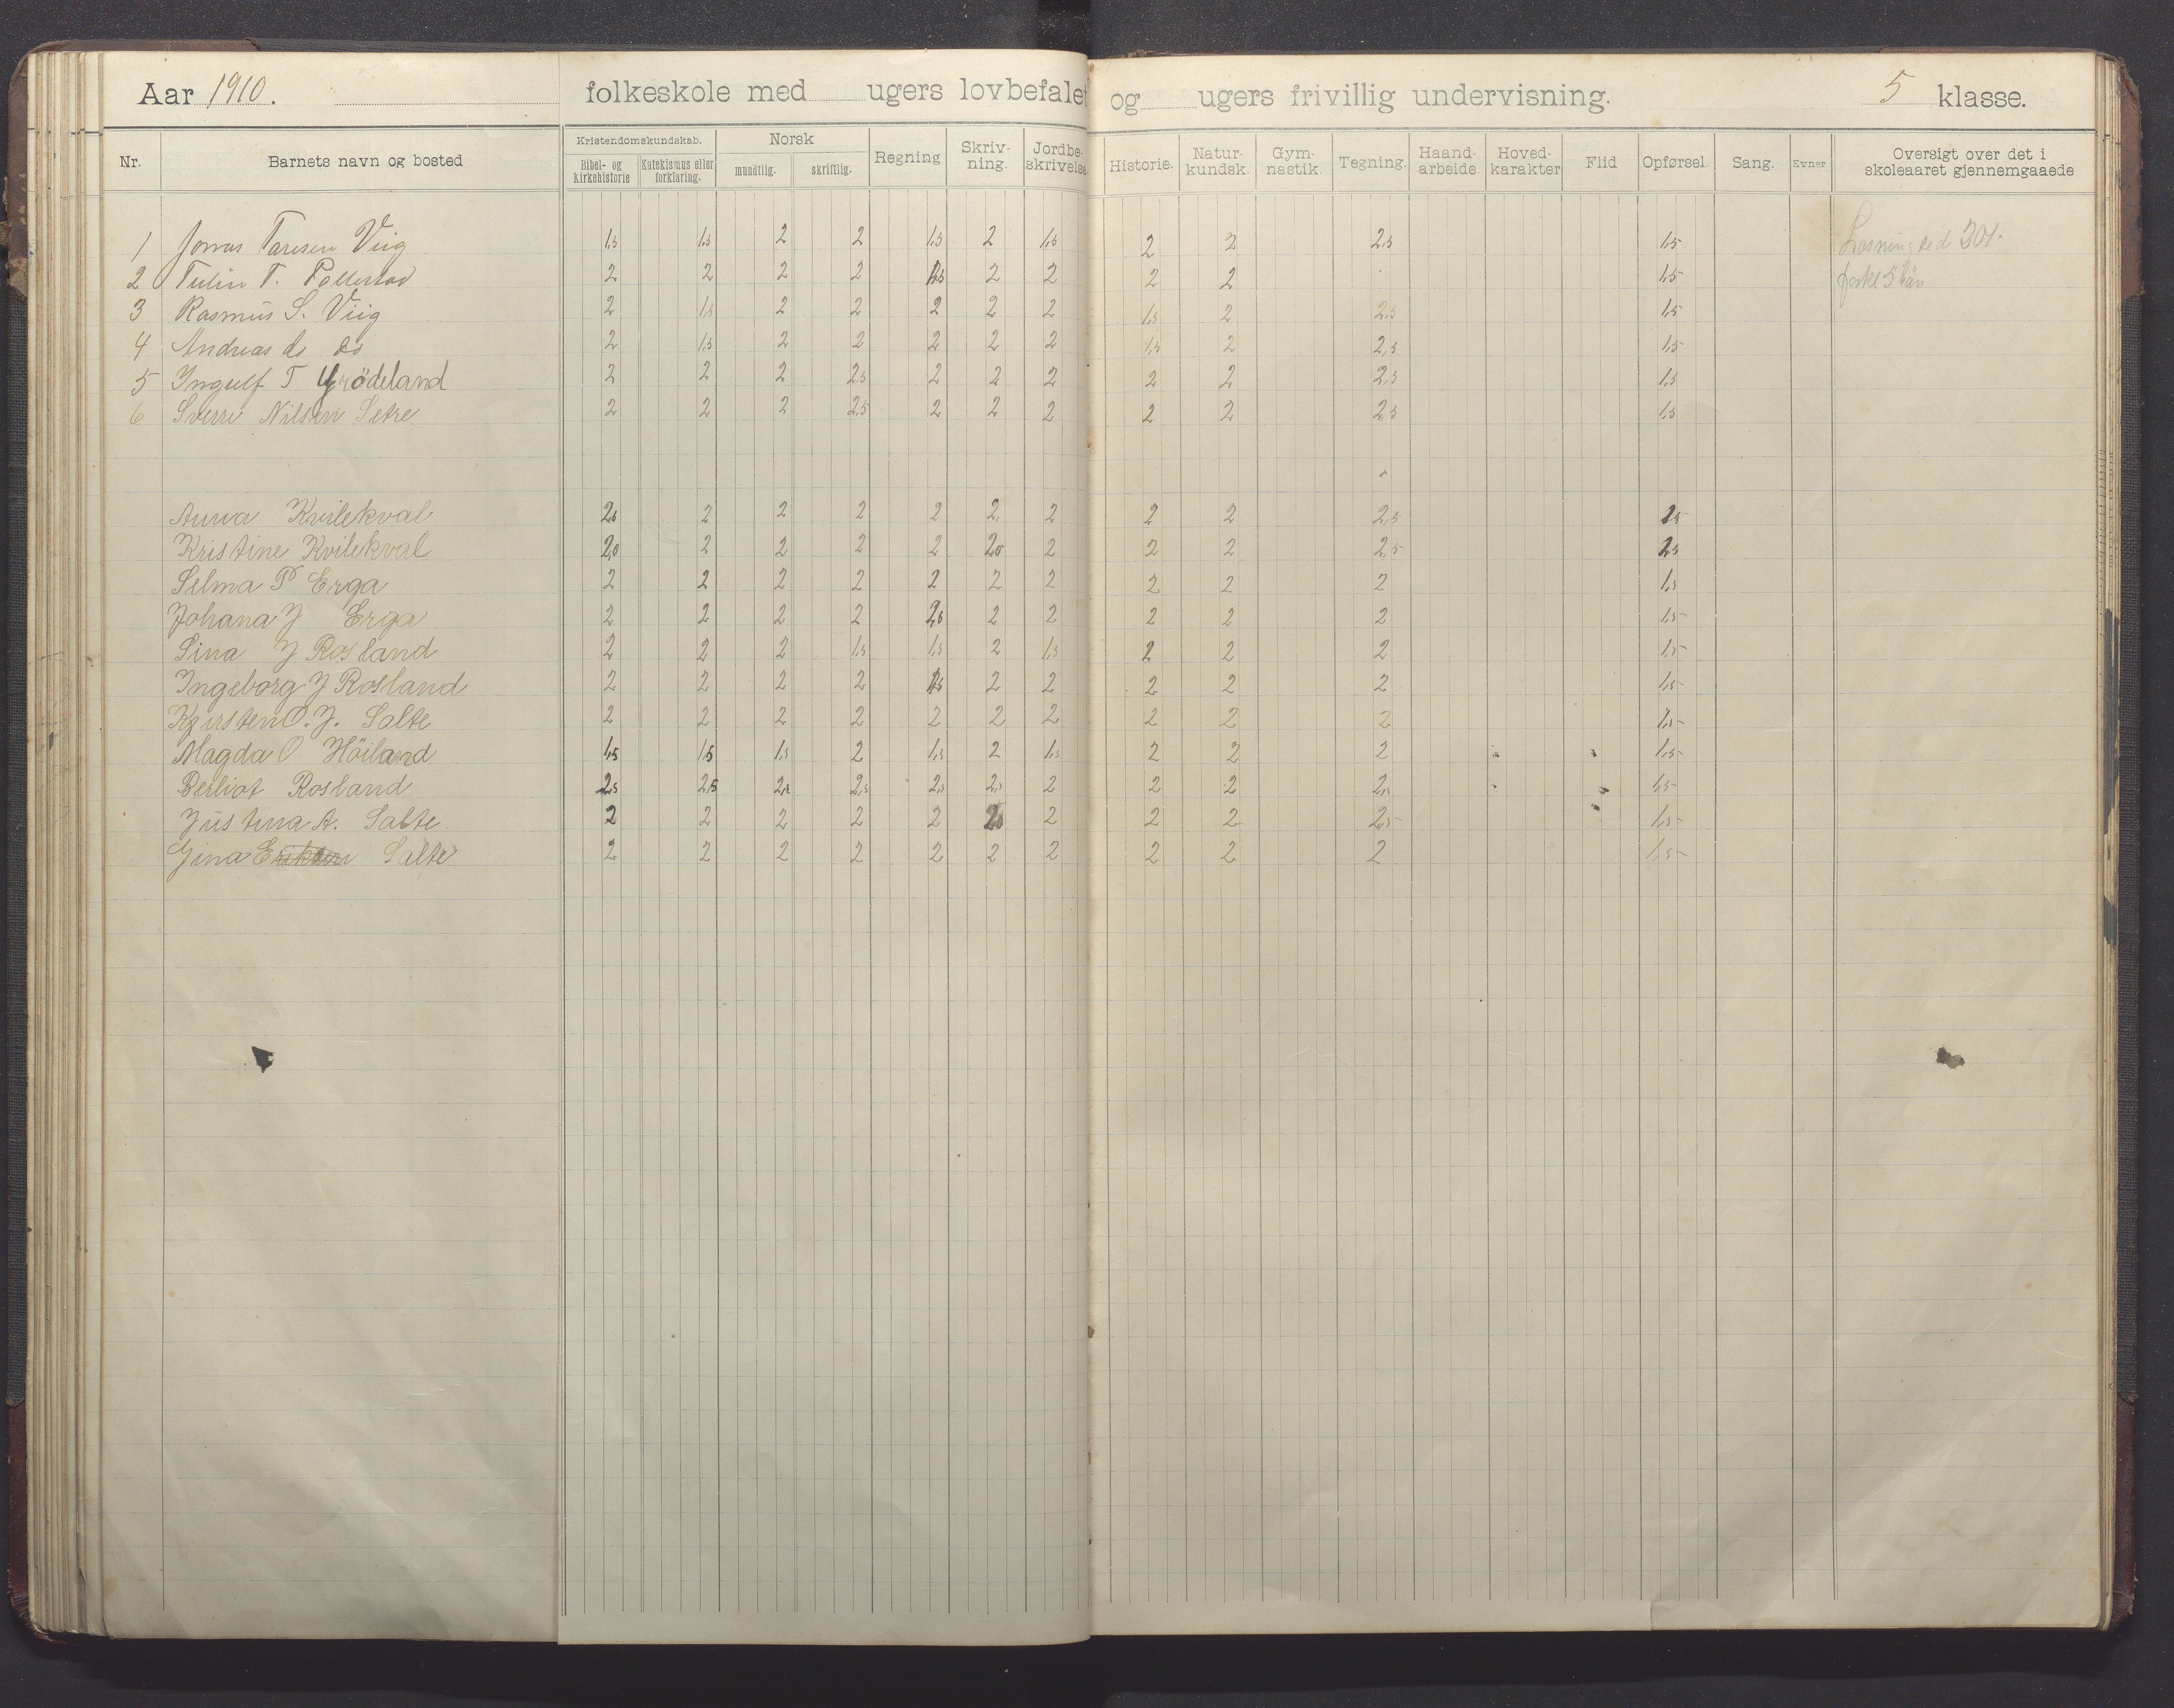 Aar 1910. folkeskole med ugers lovbefalet og ugers frivillig undervisning. 5 klasse.
Nr. Barnets navn og bosted Kristendomskundskab. Bibel- og Kirkehistorie Katekismus eller forklaring. Norsk mundtlig. skriftlig. Regning Skriv-ning. Jordbe-skrivelse Historie. Natur-kundsk. Gym-nastik. Tegning. Haand-arbeide. Hoved-karakter Flid Opførsel. Sang. Evner Oversigt over det i skoleaaret gjennemgaaede
1 Jonas Taresen Viig 1,5 1,5 2 2 1,5 2 1,5 2 2 2,5 1,5
2 Tulin T. Pollestad 2 2 2 2 2 2 2 2 1,5
3 Rasmus S. Viig 2 1,5 2 2 2 2 2 1,5 2 2,5 1,5
4 Andreas do do 2 1,5 2 2 2 2 2 1,5 2 2,5 1,5
5 Ingulf T Grödeland 2 2 2 2,5 2 2 2 2 2 2,5 1,5
6 Sverre Nilsen Setre 2 2 2 2,5 2 2 2 2 2 2,5 1,5
Anna Kvilekval 2 2 2 2 2 2 2 2 2,5
Kristine Kvilekval 2,0 2 2 2 2 2 2 2 2,5
Selma P Erga 2 2 2 2 2 2 2 2 2 2 1,5
Johana J Erga 2 2 2 2 2 2 2 2 2 1,5
Sina J Rosland 2 2 2 1,5 1,5 2 1,5 2 2 2 1,5
Ingeborg J Rosland 2 2 2 2 2 2 2 2 2 1,5
Kjersten O. J. Salte 2 2 2 2 2 2 2 2 2 2 1,5
Magda O Höiland 1,5 1,5 1,5 2 1,5 2 1,5 2 2 2 1,5
Berliot Rosland 2,5 2,5 2,5 2,5 2,5 2,5 2 2 2 2,5 1,5
Justina A. Salte 2 2 2 2 2 2 2 2 2,5 1,5
Gina Eriksen Salte 2 2 2 2 2 2 2 2 2 2 1,5